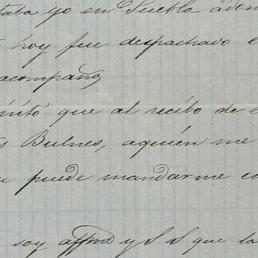 taba yo en Puebla adon
hoy fue despachado e
acompaño,
que al recibo de e
s Bulnes, aquién me
puede mandarme co
soy affmo y S S que la